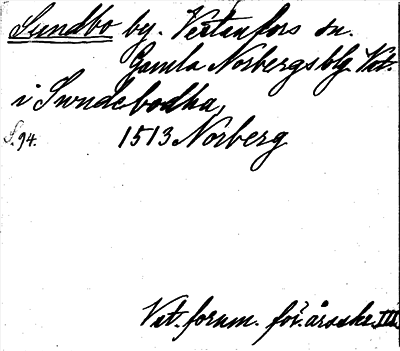 Sundbo by. Västanfors sn.
Gamla Norbergs blg. Vst.
i Swndebodha,
S. 94. 1513 Norberg
Vst. fornm. för. årsskr. III.